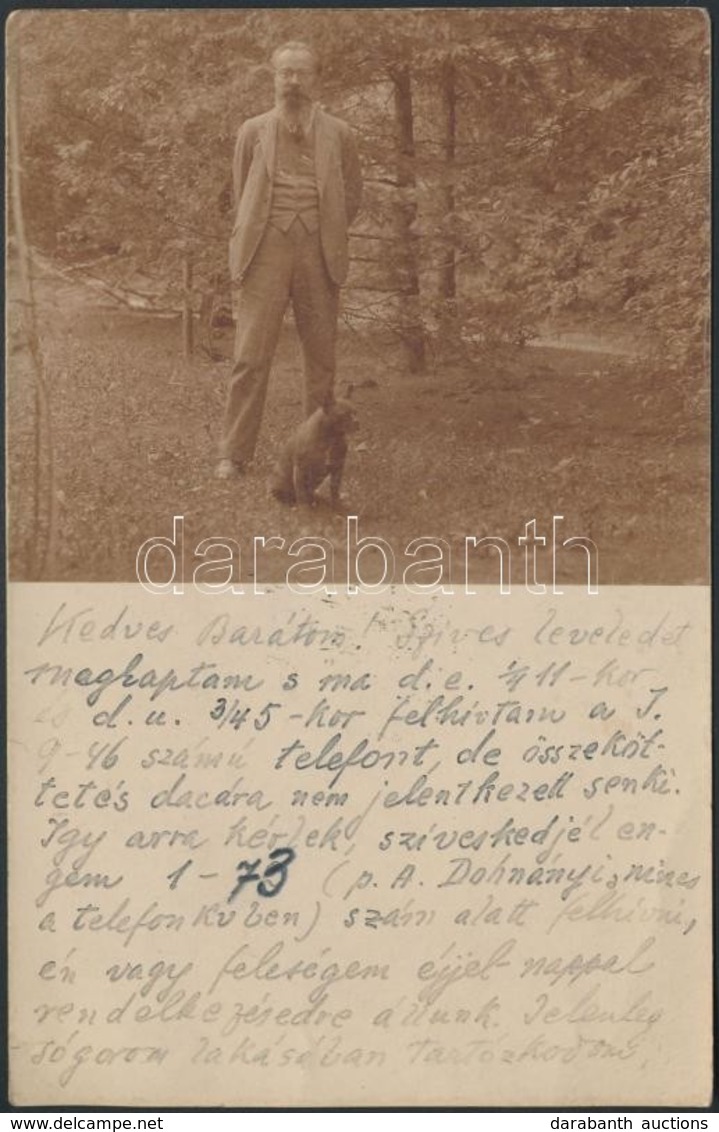 darabanth
Kedves Barátom! Szíves leveledet
megkaptam s ma d. e. 1/4 11-kor
és d. u. 3/4 5-kor felhívtam a J.
9-46 számú telefont, de összeköt-
tetés dacára nem jelentkezett senki.
Igy arra kérlek, szíveskedjél en-
gem 1-73 (p. A. Dohnányi, nincs
a telefonkvben) szám alatt felhívni,
én vagy feleségem éjjel nappal
rendelkezésedre állunk. Jelenleg
sógorom lakásában tartózkodom.
darabanth auctions
www.darabanth.com